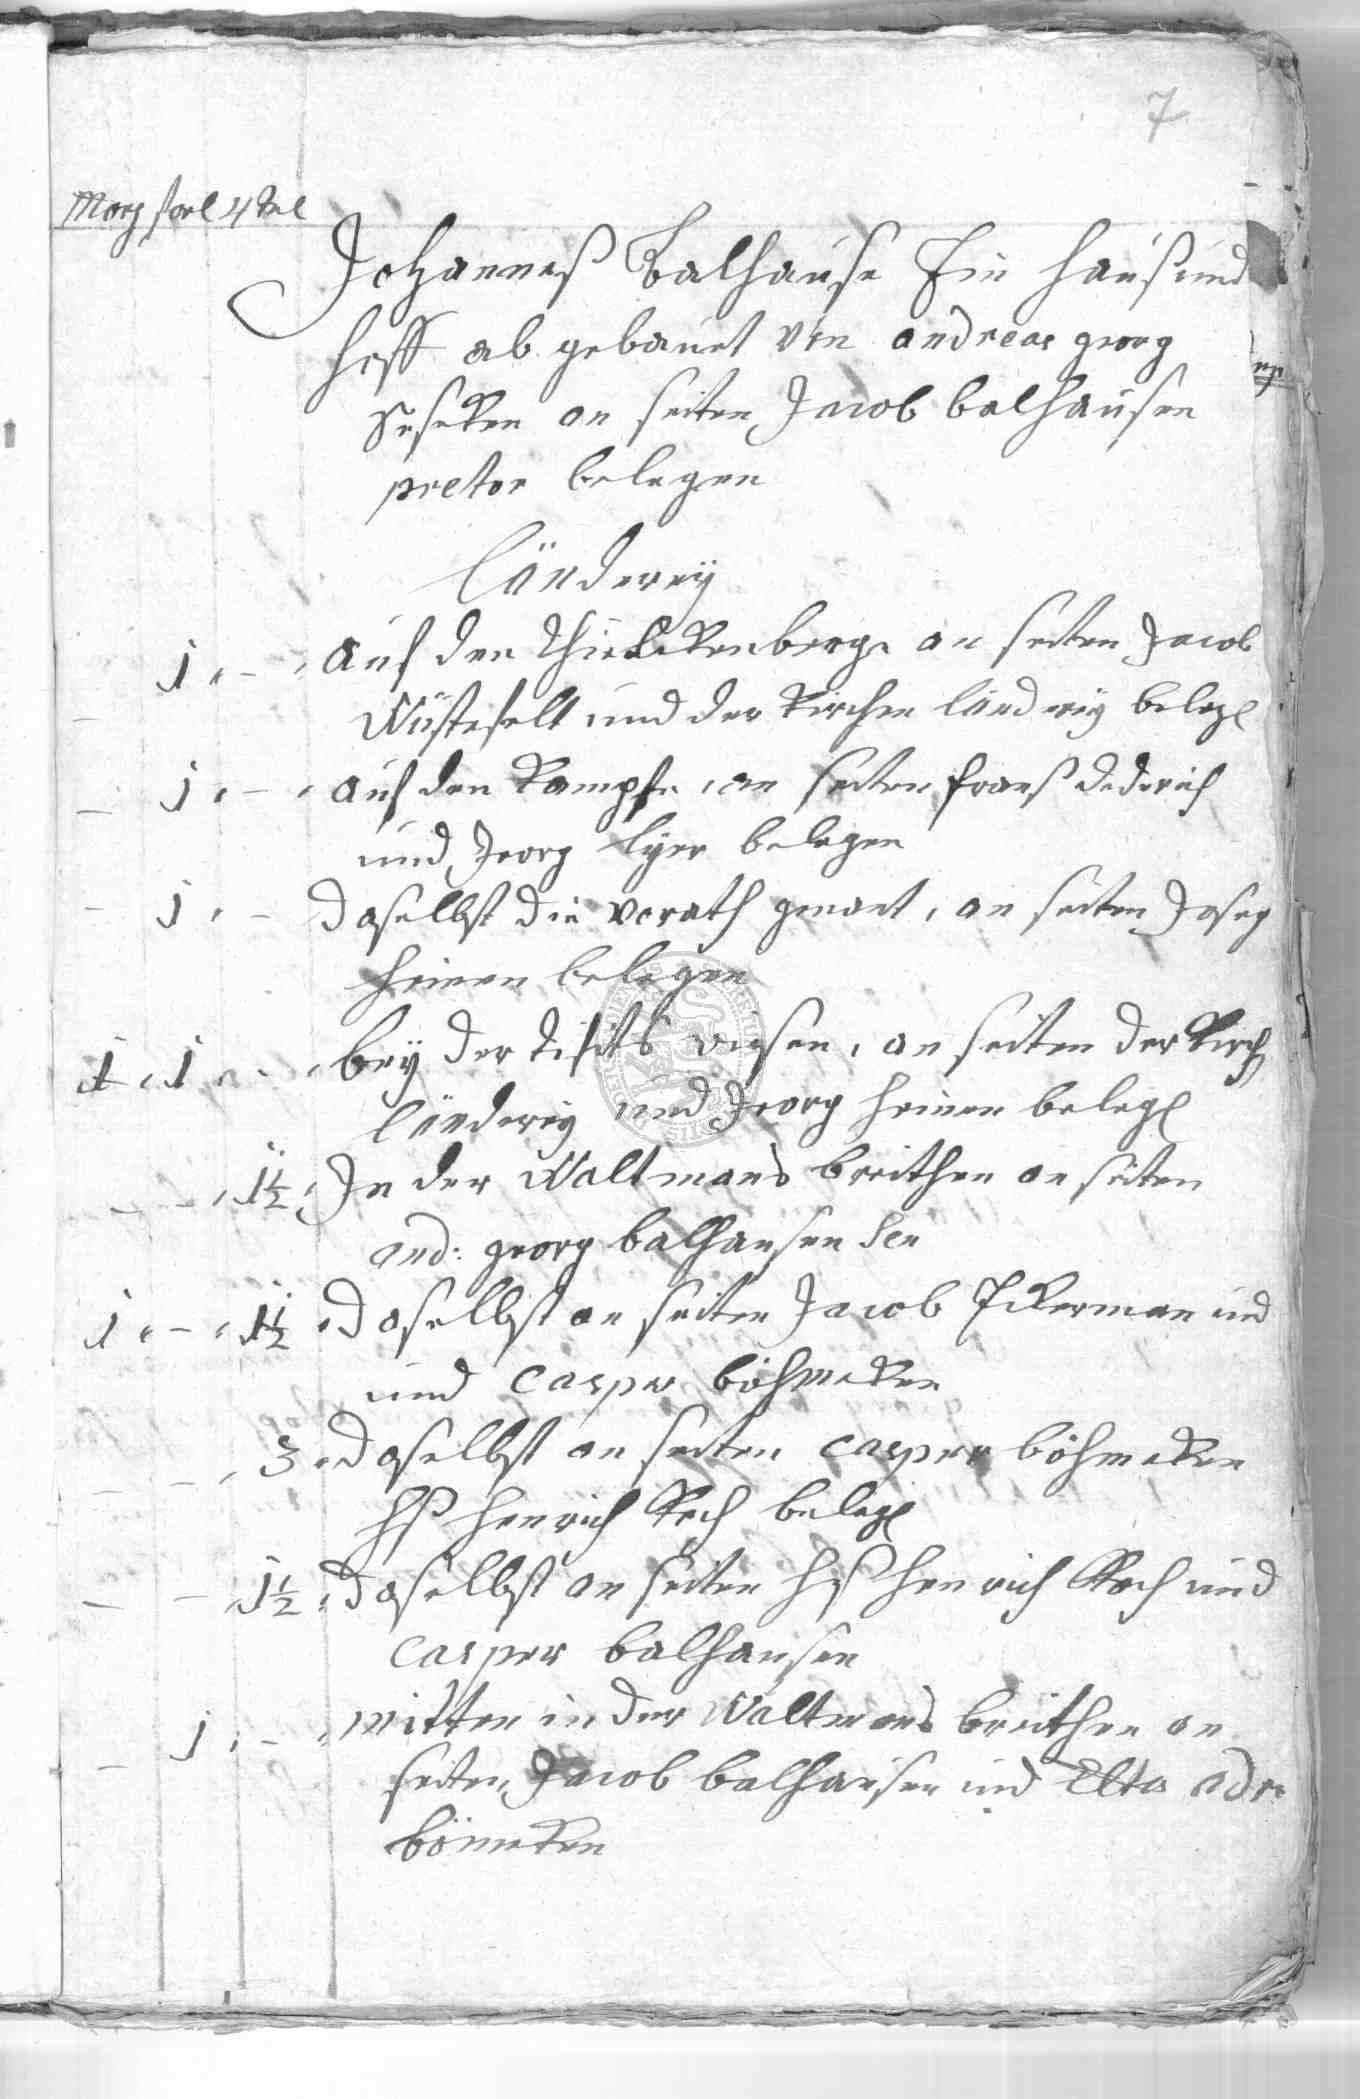 7
Morg forl 4tel
Johannes Balhause Ein hauß und
hoff ab gebauet von andreas georg
an seiten Jacob balhausen
pretor belegen
Länderey
1 - auf den an seiten Jacob
Wüstefelt und der Kirchen länderey beleg
- 1 - auf den Kampfe, an seiten frans dederich
und Jeorg lyer belegen
- 1 - daselbst die vorath gewant, an seiten Josep
heinen belegen
1 1 - bey der wiesen, an seiten der Kirch
länderey und Jeorg heinen beleg
- - 1½ In der Waltmans breithen an seiten
and: georg balhausen Sen
1 - 1½ daselbst an seiten Jacob Ickerman und
und Casper böhmeken
- - 3 daselbst an seiten Casper böhmeken
Hs Henrich Koch beleg
- - 1½ daselbst an seiten Hs Henrich Koch und
Casper balhausen
- 1 - mitten in der Waltmans breithen an
seiten Jacob balhausen und
bömeken